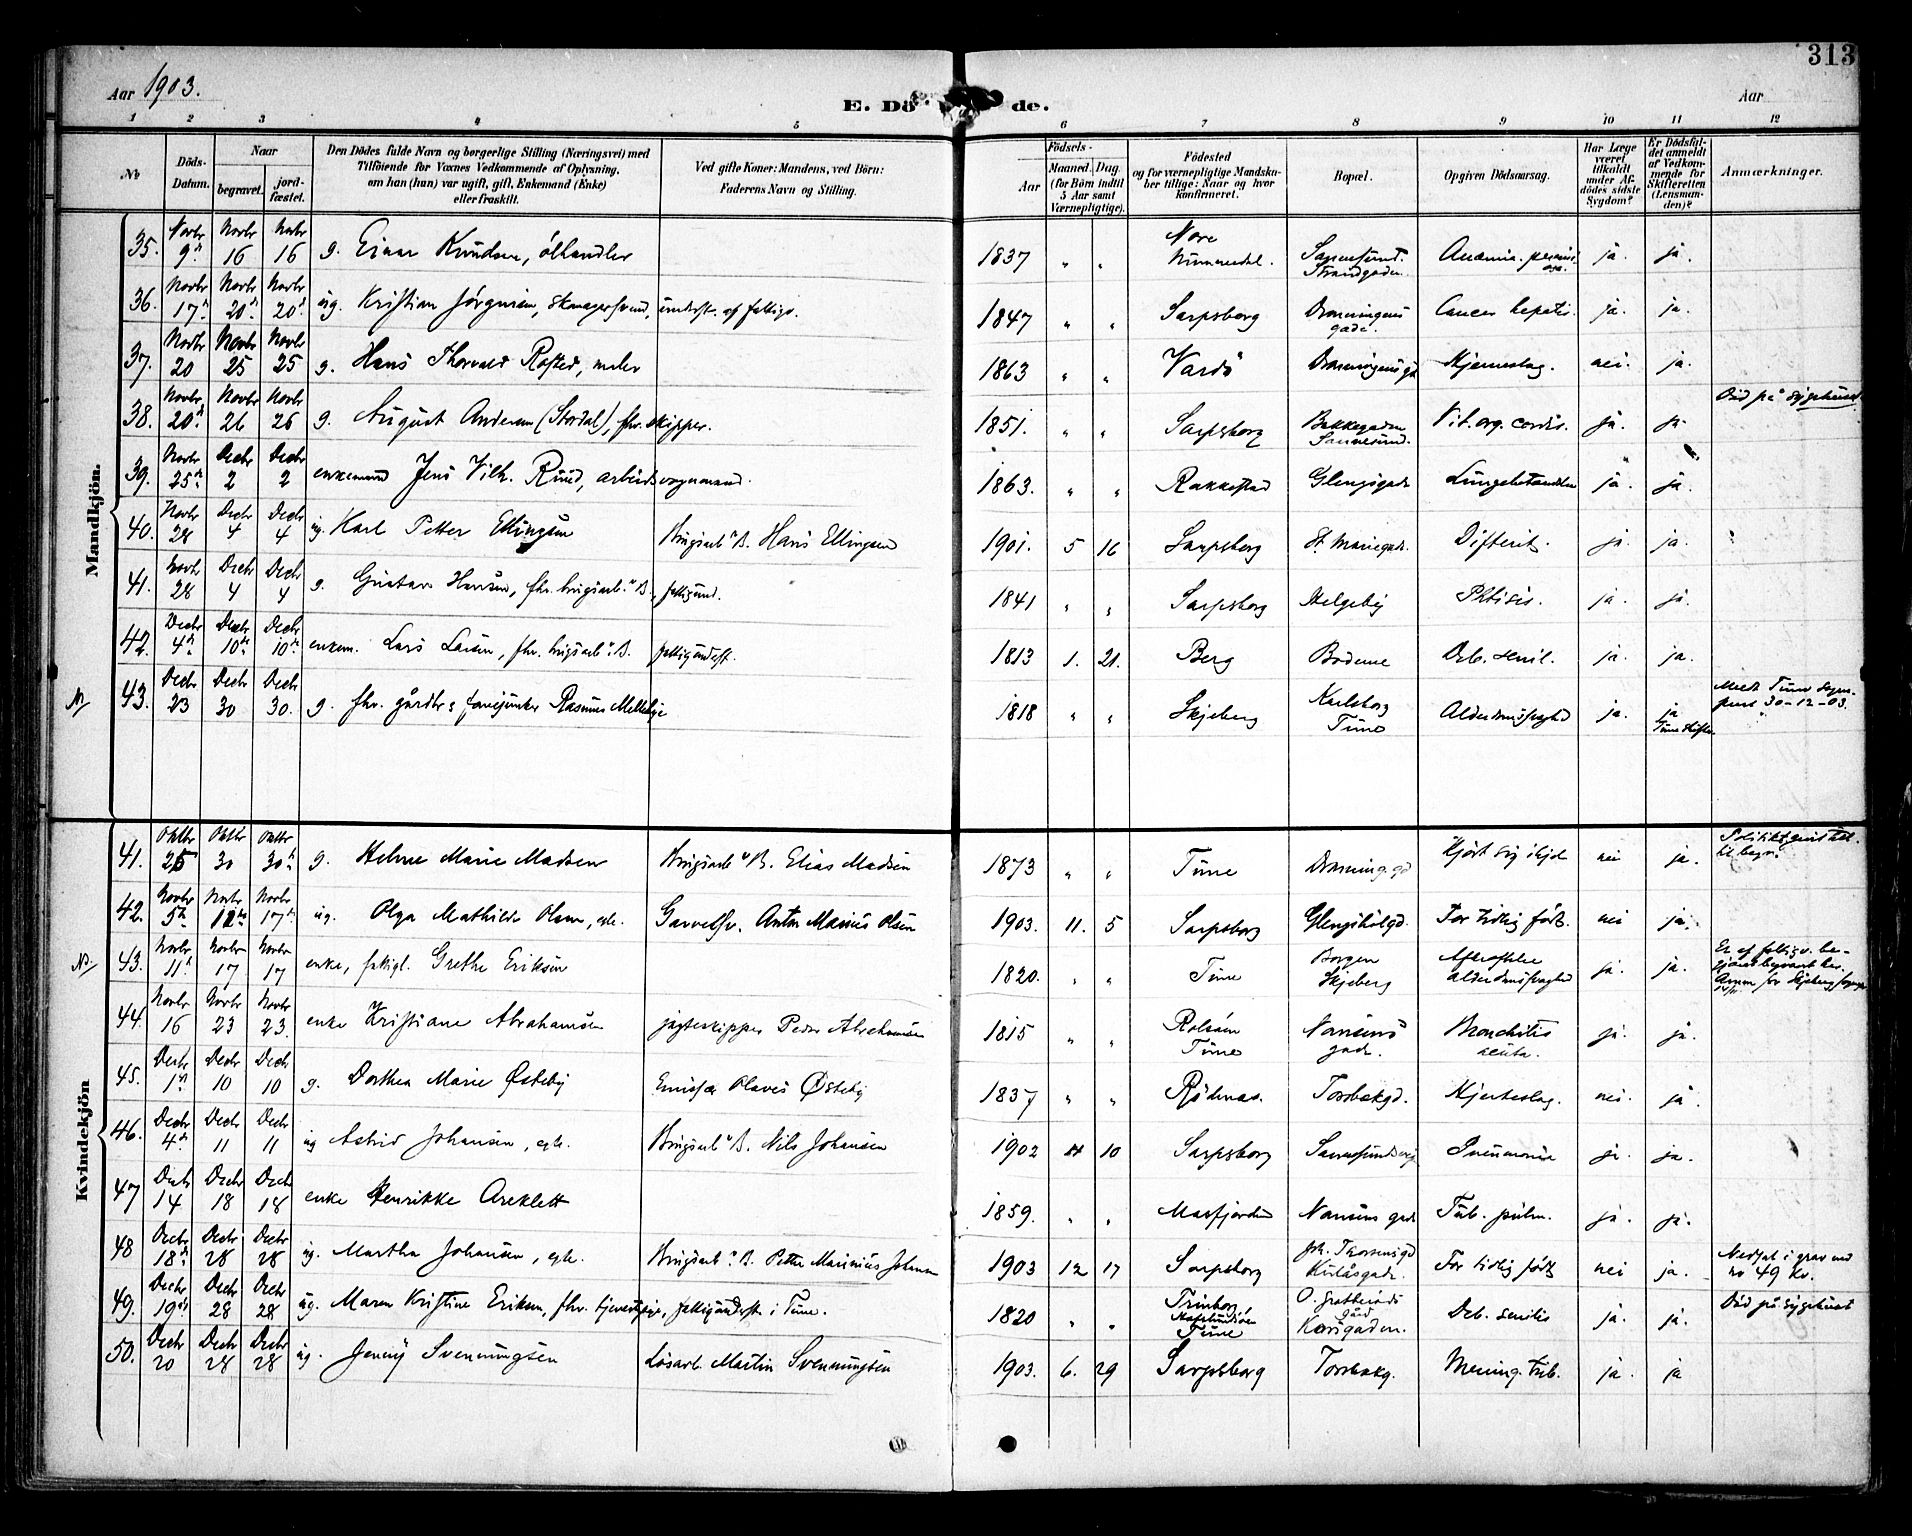 313
Aar 1903.
E. Dö de.
Aar
1 2 3 4 5 6 7 8 9 10 11 12
No
Döds-Datum.
Naar
begravet.
jord-fæstet.
Den Dödes fulde Navn og borgerlige Stilling (Næringsvei) med
Tilföiende for Voxnes Vedkommende af Oplysning,
om han (hun) var ugift, gift, Enkemand (Enke)
eller fraskilt.
Ved gifte Koner: Mandens, ved Börn:
Faderens Navn og Stilling.
Födsels-
Aar
Maaned. Dag.
(for Börn indtil
5 Aar samt
Værnepligtige).
Födested
og for værnepligtige Mandska-
ber tillige: Naar og hvor
konfirmeret.
Bopæl.
Opgiven Dödsaarsag.
Har Læge
været
tilkaldt
under Af-
dödes sidste
Sygdom?
Er Dödsfal-
det anmeldt
af Vedkom-
mende for
Skifteretten
(Lensman-
den)?
Anmærkninger.
Mandkjön.
35. Novbr 9de Novbr 16 Novbr 16 g. Einar Knudsen, ölhandler 1837 " " Nore Nummedal. Sannesund. Strandgaden. Anæmia pernic ja. ja.
36. Novbr 17de Novbr 20de Novbr 20de ug. Kristian Jörgensen, skomagersvend, underst. af fattigv. 1847 " " Sarpsborg Dronningensgade. Cancer hepatis. ja. ja.
37. Novbr 20 Novbr 25 Novbr 25 g. Hans Thorvald Rofsted, maler 1863 " " Vardö Dronningensgd Hjerneslag. nei. ja.
38. Novbr 20de Novbr 26 Novbr 26 g. August Andersen (Stordal), fhv. skipper. 1851. " " Sarpsborg Bakkegaden Sannesund. Vit. org. cordis. ja. ja. Död på sygehuset
39. Novbr 25de Decbr 2 Decbr 2 enkemand Jens Vilh. Ruud, arbeidsvognmand. 1863. " " Rakkestad Glengsgade Lungebetændelse ja. ja.
40. Novbr 28 Decbr 4 Decbr 4 ug. Karl Petter Ellingsen Brugsarb. v. B. Hans Ellingsen 1901. 5 16 Sarpsborg St. Mariegade. Difterit. ja. ja.
41. Novbr 28 Decbr 4 Decbr 4 g. Gustav Hansen, fhv. brugsarb. v. B., fattigund. 1841 " " Sarpsborg Helgeby Phtisis. ja. ja.
42. Decbr 4de Decbr 10de Decbr 10de enkem. Lars Larsen, fhv. brugsarb. v. B. fattigunderst. 1813 1. 21. Berg Boderne Deb. senil. ja. ja.
43. Decbr 23 Decbr 30 Decbr 30. g. fhv. gårdbr. & fanejunker Rasmus Melleby 1818 " " Skjeberg Karlsborg Tune Alderdomssvaghed ja. ja Tune Skifter. Meldt Tune Sogneprest 30-12-03.
Kvindekjön
41. Oktbr 25 Oktbr 30 Oktbr 30te g. Helene Marie Madsen Brugsarb. v. B. Elias Madsen 1873 " " Tune Dronning.gd Kjört sig ihjel nei ja.
42. Novbr 5te Novbr Novbr 17de ug. Olga Mathilde Olsen, egte. Garversv. Anton Marius Olsen 1903. 11. 5 Sarpsborg Glengshølgd. For tidlig födt. nei ja.
43. Novbr 11te Novbr 17 Novbr 17 enke, fattigl. Grethe Eriksen 1820. " " Tune Borgen Skjeberg Alderdomssvaghed ja. ja.
44. Novbr 16 Novbr 23 Novbr 23. enke Kristiane Abrahamsen jagteskipper Peder Abrahamsen 1815 " " Rolsöen Tune Nansens gade. Bronchitis acuta. ja. ja.
45. Decbr 1ste Decbr 10 Decbr 10 g. Dorthea Marie Østeby Emissær Olavus Østeby 1837 " " Rödenes. Torsbækgd. Hjerteslag. nei. ja.
46. Decbr 4de Decbr 11 Decbr 11 ug Astrid Johansen, egte. Brugsarb. v. B. Nils Johansen 1902 10 Sarpsborg Sannesundsvej Pneumonie ja. ja.
47 Decbr 14 Decbr 18 Decbr 18 enke Henrikke Areklett 1859. " " Masfjorden Nansens gade Tub. pulm. ja. ja.
48 Decbr 18de Decbr 28 Decbr 28 ug. Martha Johansen, egte. Brugsarb. v. B. Petter Marinius Johansen 1903 12 17 Sarpsborg Kirkåsgade. For tidlig födt nei ja. Nedsat i grav med no 49 Kv.
49. Decbr 19de Decbr 28 Decbr 28 ug. Maren Kristine Eriksen, fhv. tjenestepige, fattigunderst. i Tune. 1820 " " Hafslundsöen Tune Korsgaden. Deb. senilis ja. ja. Död på sygehuset
50. Decbr 20 Decbr 28 Decbr 28 ug. Jenny Svenningsen Lösarb. Martin Svenningsen 1903. 6. 29 Sarpsborg Torsbækg. Mening. tub. ja. ja